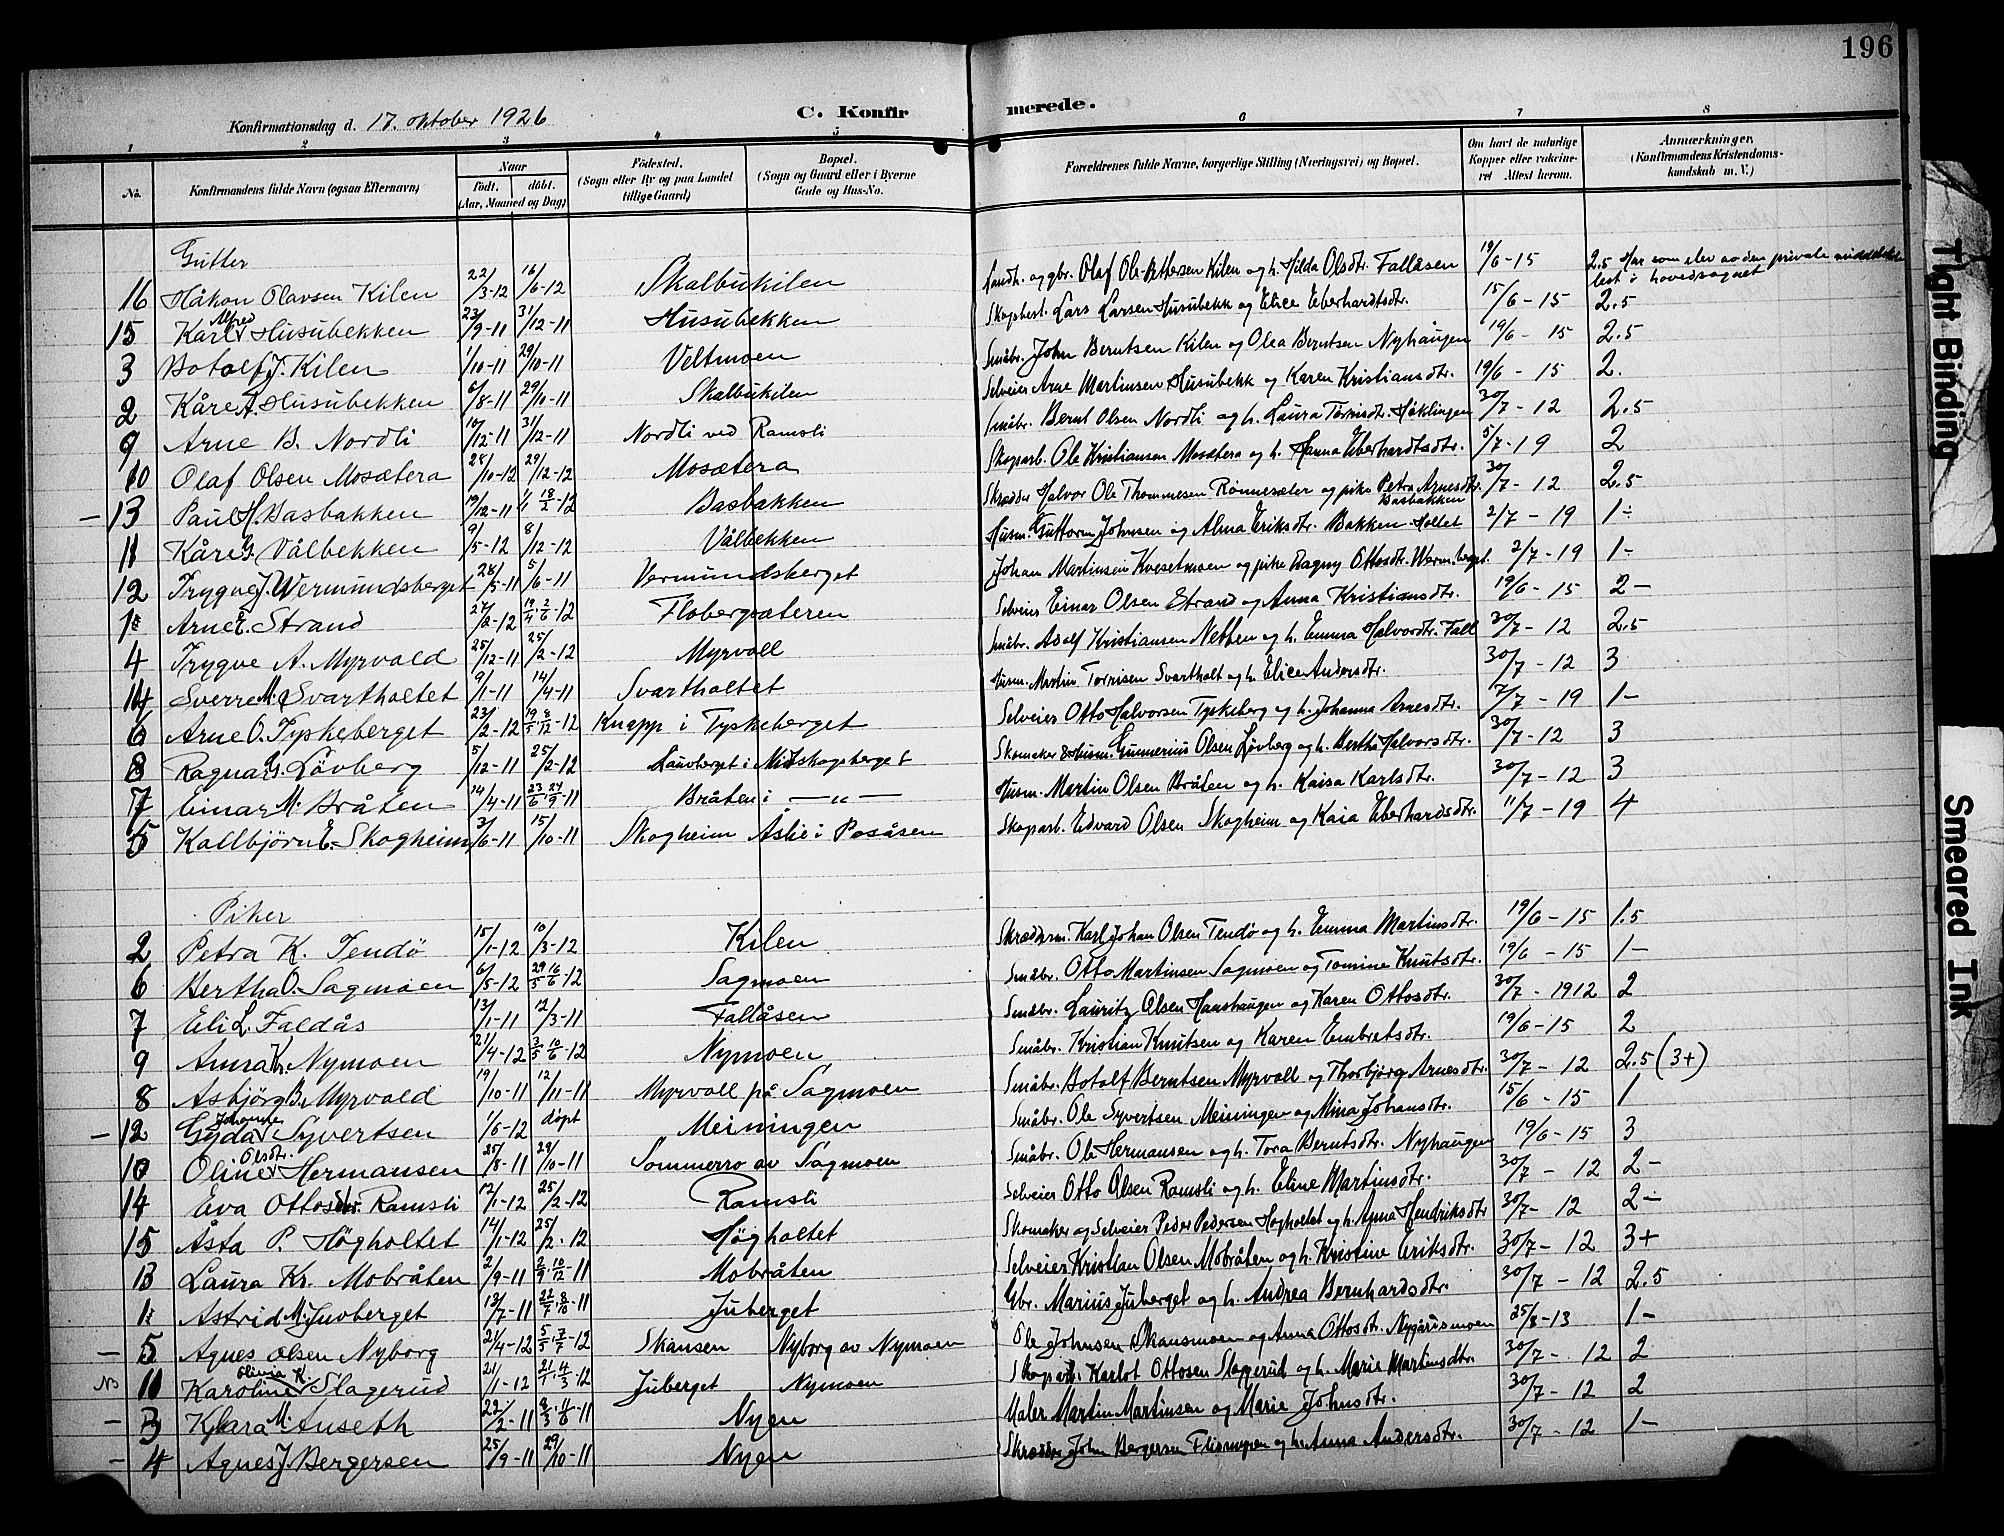 196
Konfirmationsdag d. 17. oktober 1926
C. Konfirmerede.
1 2 3 4 5 6 7 8
No.
Konfirmandens fulde Navn (ogsaa Efternavn)
Naar født. døbt. (Aar, Maaned og Dag)
Fødested. (Sogn eller By og paa Landet tillige Gaard)
Bopæl. (Sogn og Gaard eller i Byerne Gade og Hus-No.
Forældrenes fulde Navne, borgerlige Stilling (Næringsvei) og Bopæl.
Om havt de naturlige Kopper eller vaccineret Attest herom.
Anmærkninger. (Konfirmandens Kristendomskundskab m. V.)
Gutter
16 Håkon Olavsen Kilen 22/3-12 16/6-12 Skalbukilen Landh. og gbr. Olaf Ole Pettersen Kilen og h. Hilda Olsdtr. Fallåsen 19/6-15 2.5 Har som elev av den private middelskole lest i hovedsognet
15 Karl Alfred Husubekken 23/9-11 31/12-11 Husubekken Skogbest. Lars Larsen Husubekk og Elice Eberhardtsdtr. 15/6-15 2.5
3 Botolf J. Kilen 1/10-11 29/10-11 Veltmoen Småbr. John Berntsen Kilen og Olea Berntsen Nyhaugen 19/6-15 2.5
2 Kåre A. Husubekken 6/8-11 29/10-11 Skalbukilen Selveier Arne Martinsen Husubekk og Karen Kristiansdtr. 19/6-15 2.
9 Arne B. Nordli 10/12-11 31/12-11 Nordli ved Ramsli Småbr. Bernt Olsen Nordli og h. Laura Tørrisdtr. Høklingen 30/7-12 2.5
10 Olaf Olsen Mosætera 28/10-12 29/12-12 Mosætera Skogarb. Ole Kristiansen Mosætera og h. Hanna Eberhardtsdtr. 5/7-19 2
- 13 Paul H. Basbakken 19/12-11 1/1 18/2-12 Basbakken Skrædder Halvor Ole Thommesen Rönnesæter og pike Petra Arnesdtr. Basbakken 30/7-12 2.5
11 Kåre G. Vålbekken 9/5-12 8/12-12 Vålbekken Husm. Guttorm Johnsen og Alma Eriksdtr. Bakken-Holtet 2/7-19 1-
12 Trygve J. Wermundsberget 28/5-11 5/6-11 Vermundsberget Johan Martinsen Kvesetmoen og pike Dagny Ottosdtr. Werm.berget. 2/7-19 1-
1 Arne E. Strand 27/2-12 19/4 2/6-12 Flobergsæteren Selveier Einar Olsen Strand og Anna Kristiansdtr. 19/6-15 2-
4 Trygve A. Myrvold 25/12-11 25/2-12 Myrvoll Småbr. Adolf Kristiansen Nebben og h. Emma Halvorsdtr. Fall 30/7-12 2.5
14 Sverre M. Svartholtet 9/1-11 14/4-11 Svartholtet Husm. Martin Tørrisen Svartholt og h. Elice Andersdtr. 30/7-12 3
6 Arne O. Tyskeberget 23/2-12 19/5 8/12-12 Knapp i Tyskeberget Selveier Otto Halvorsen Tyskeberg og h. Johanna Arnesdtr. 7/7-19 1-
8 Ragnar G. Lövberg 5/12-11 25/2-12 Lauvberget i Midtskogsberget Skomaker & husm. Gunnerius Olsen Lövberg og h. Bertha Halvorsdtr. 30/7-12 3
7 Einar M. Bråten 14/4-11 23/6 24/9-11 Bråten i -"- Husm. Martin Olsen Bråten og h. Kaisa Karlsdtr. 30/7-12 3
5 Kallbjörn E. Skogheim 3/6-11 15/10-11 Skogheim Aslie i Posåsen Skogarb. Edvard Olsen Skogheim og Kaia Eberhardsdtr. 11/7-19 4
Piker
2 Petra K. Tendö 15/1-12 10/3-12 Kilen Skrædderm. Karl Johan Olsen Tendö og h. Emma Martinsdtr. 19/6-15 1.5
6 Bertha O. Sagmoen 6/5-12 29/5 16/6-12 Sagmoen Småbr. Otto Martinsen Sagmoen og Tomine Knutsdtr. 19/6-15 1-
7 Eli L. Faldås 13/1-11 12/3-11 Fallåsen Småbr. Lauritz Olsen Haashaugen og Karen Ottosdtr. 30/7-1912 2
9 Anna K. Nymoen 21/4-12 3/5 10/6-12 Nymoen Småbr. Kristian Knutsen og Karen Embretsdtr. 19/6-15 2
8 Asbjörg B. Myrvold 19/10-11 12/11-11 Myrvoll på Sagmoen Småbr. Botolf Berntsen Myrvoll og Thorbjörg Arnesdtr. 30/7-12 2.5 (3+)
- 12 Gyda Johanne Syvertsen 1/6-12 döpt Meiningen Småbr. Ole Syvertsen Meiningen og Mina Johansdtr. 15/6-15 1
10 Oline Olsdtr. Hermansen 25/8-11 29/10-11 Sommerro av Sagmoen Småbr. Ole Hermansen og h. Tora Berntsdtr. Nyhaugen 19/6-15 3
14 Eva Ottosdtr. Ramsli 12/1-12 25/2-12 Ramsli Selveier Otto Olsen Ramsli og h. Eline Martinsdtr. 30/7-12 2-
15 Åsta P. Högholtet 14/1-12 25/2-12 Högholtet Skomaker og Selveier Peder Pedersen Högholtet og h. Anna Hendriksdtr 30/7-12 2-
13 Laura Kr. Mobråten 2/9-11 2/9 10/12-11 Mobråten Selveier Kristian Olsen Mobråten og h. Kristine Eriksdtr. 30/7-12 3+
1 Astrid M. Juvberget 13/7-11 22/7 8/10-11 Juberget Gbr. Marius Juberget og h. Andrea Bernhardsdtr. 30/7-12 2.5
- 5 Agnes Olsen Nyborg 21/4-12 5/5 7/7-12 Skansen Nyborg av Nymoen Ole Johnsen Skansmoen og Anna Ottosdtr. Nygårdsmoen 25/8-13 1-
NB 11 Karoline Olivia K. Slagerud 21/1-12 21/1 4/3-12 Juberget Nymoen Skogarb. Karlot Ottosen Slagerud og h. Marie Martinsdtr. 30/7-12 2
- 3 Klara M. Anseth 22/2-11 8/3 4/6-11 Nyen Maler Martin Martinsen og Marie Johnsdtr. 30/7-12 2
- 4 Agnes J. Bergersen 25/9-11 29/10-11 Nyen Skrædder John Bergersen Flisnyen og h. Anna Andersdtr. 30/7-12 1-
Tight Binding
Smeared Ink